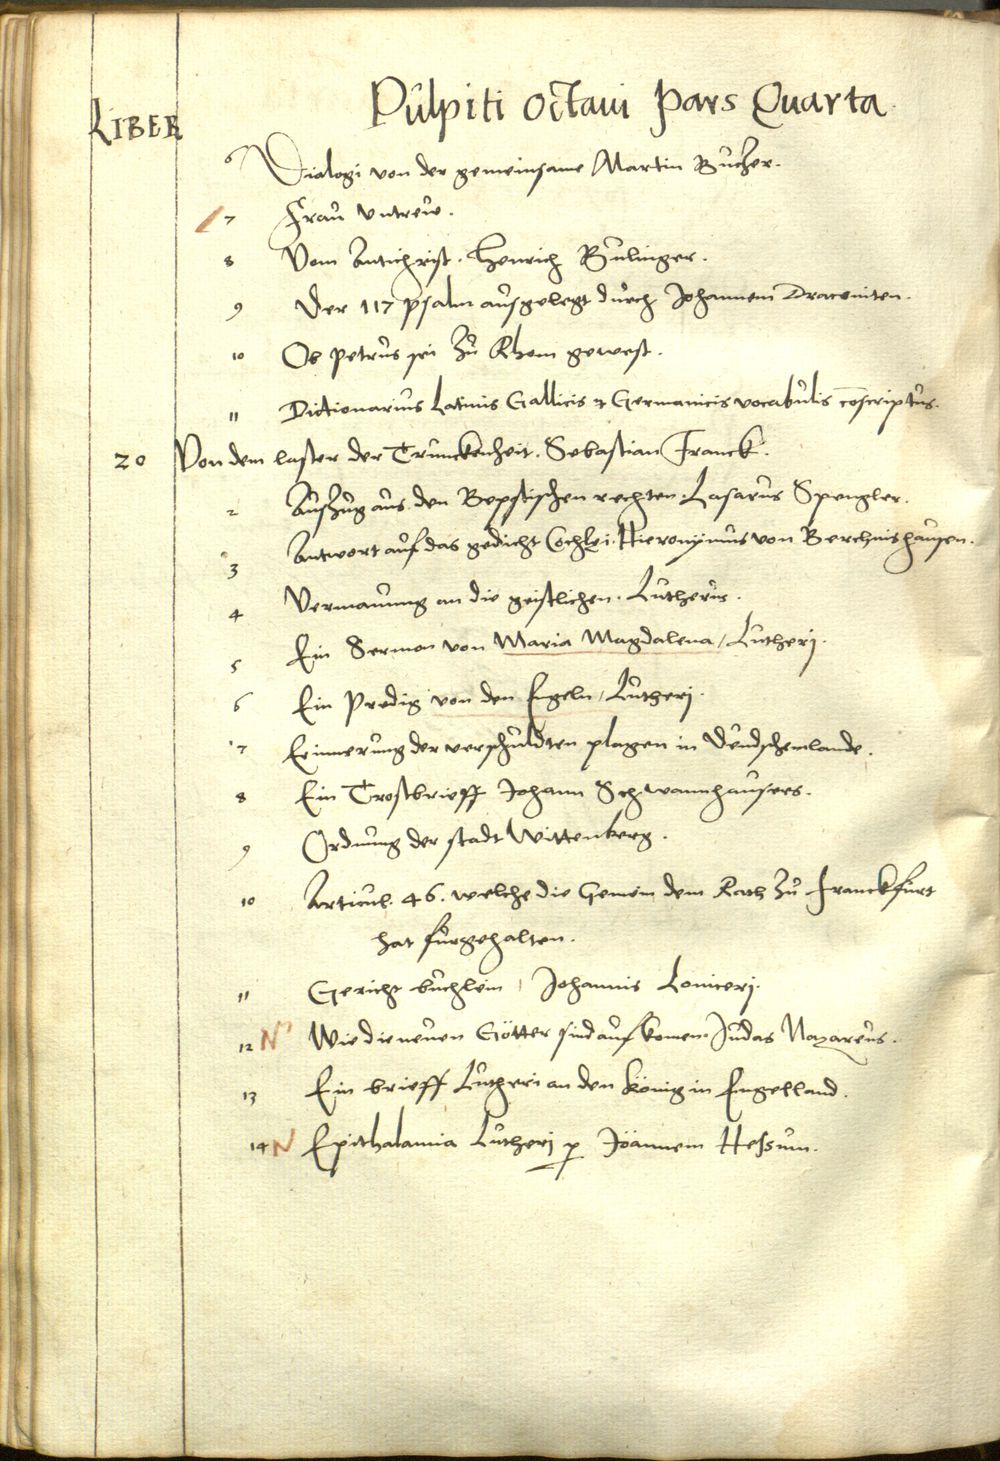 Pulpiti octaui Pars Quarta
LIBER
6 Dialogi von der gemeinsame Martin Bucher.
7 Frau vntrew.
8 Vom Antichrist. Henrich Bulinger.
9 Der 117 psalm ausgelegt durch Johannem Draconiten.
10 Ob Petrus sei zu Rhom gewest.
11 Dictionarius Latinis Gallicis & Germanicis vocabulis cōscriptus.
20 Von dem laster der Trunckenheit. Sebastian Franck.
2 Auszug aus den Bepstischen rechten. Lasarus Spengler.
3 Antwort auf das gedicht Cochlei. Hieronÿmus von Berchnishausen.
4 Vermanung an die geistlichen. Lutherus.
5 Ein Sermon von Maria Magdalena / Lutherj.
6 Ein Predig von den Engeln / Lutherj.
7 Erinnerung der verschuldten plagen in Deudschemlande.
8 Ein Trostbrieff Johann Schwannhausers.
9 Ordnung der stadt Wittenberg.
10 Articul. 46. welche die Gemein dem Rath zu Franckfurt
hat furgehalten.
11 Gericht buchlein / Johannis Lonicerj.
12 N Wie die neuen Götter sind auf komen Judas Nazareus.
13 Ein brieff Lutheri an den König in Engelland.
14 N Epithalamia Lutherj p Joannem Hessum.